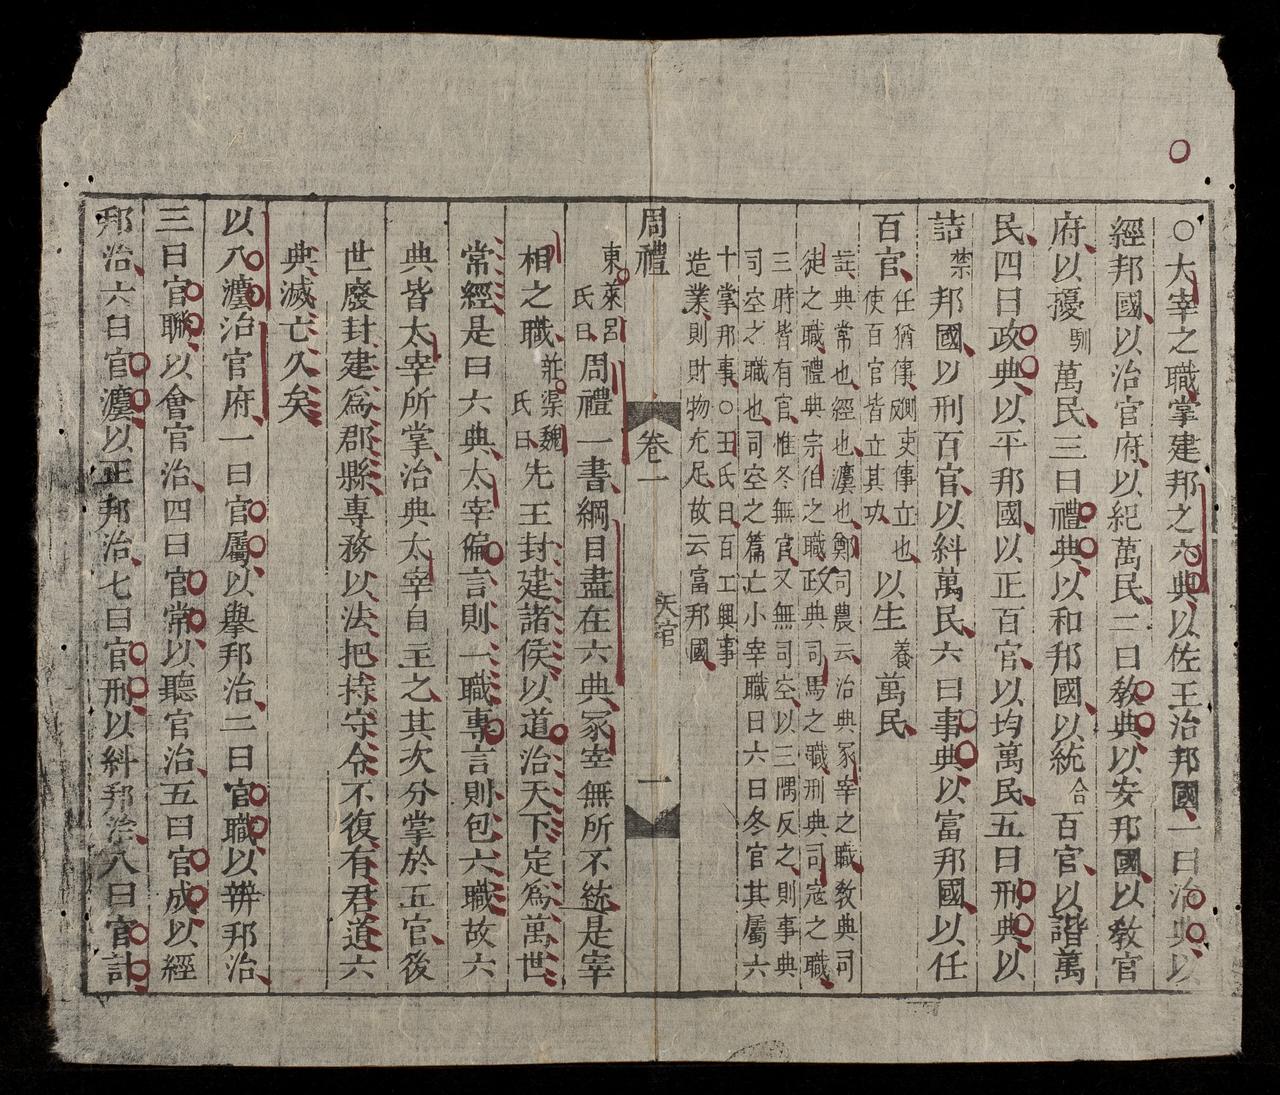 ○大宰之職掌建邦之六典以佐王治邦國一曰治典以
經邦國以治官府以紀萬民二曰教典以安邦國以教官
府以擾馴萬民三曰禮典以和邦國以統合百官以諧萬
民四曰政典以平邦國以正百官以均萬民五曰刑典以
詰禁邦國以刑百官以糾萬民六曰事典以富邦國以任
百官任猶倳側吏倳立也使百官皆立其功以生養萬民
註典常也經也灋也鄭司農云治典冢宰之職教典司
徒之職禮典宗伯之職政典司馬之職刑典司寇之職
三時皆有官惟冬無官又無司空以三隅反之則事典
司空之職也司空之篇亡小宰職曰六曰冬官其屬六
十掌邦事○王氏曰百工興事
造業則財物充足故云富邦國
周禮 卷一 天官 一
東萊呂氏曰周禮一書綱目盡在六典冢宰無所不統是宰
相之職莊渠魏氏曰先王封建諸侯以道治天下定為萬世
常經是曰六典太宰偏言則一職專言則包六職故六
典皆太宰所掌治典太宰自主之其次分掌於五官後
世廢封建為郡縣專務以法把持守令不復有君道六
典滅亡久矣
以八灋治官府一曰官屬以舉邦治二曰官職以辨邦治
三曰官聯以會官治四曰官常以聽官治五曰官成以經
邦治六曰官灋以正邦治七曰官刑以糾邦治八曰官計